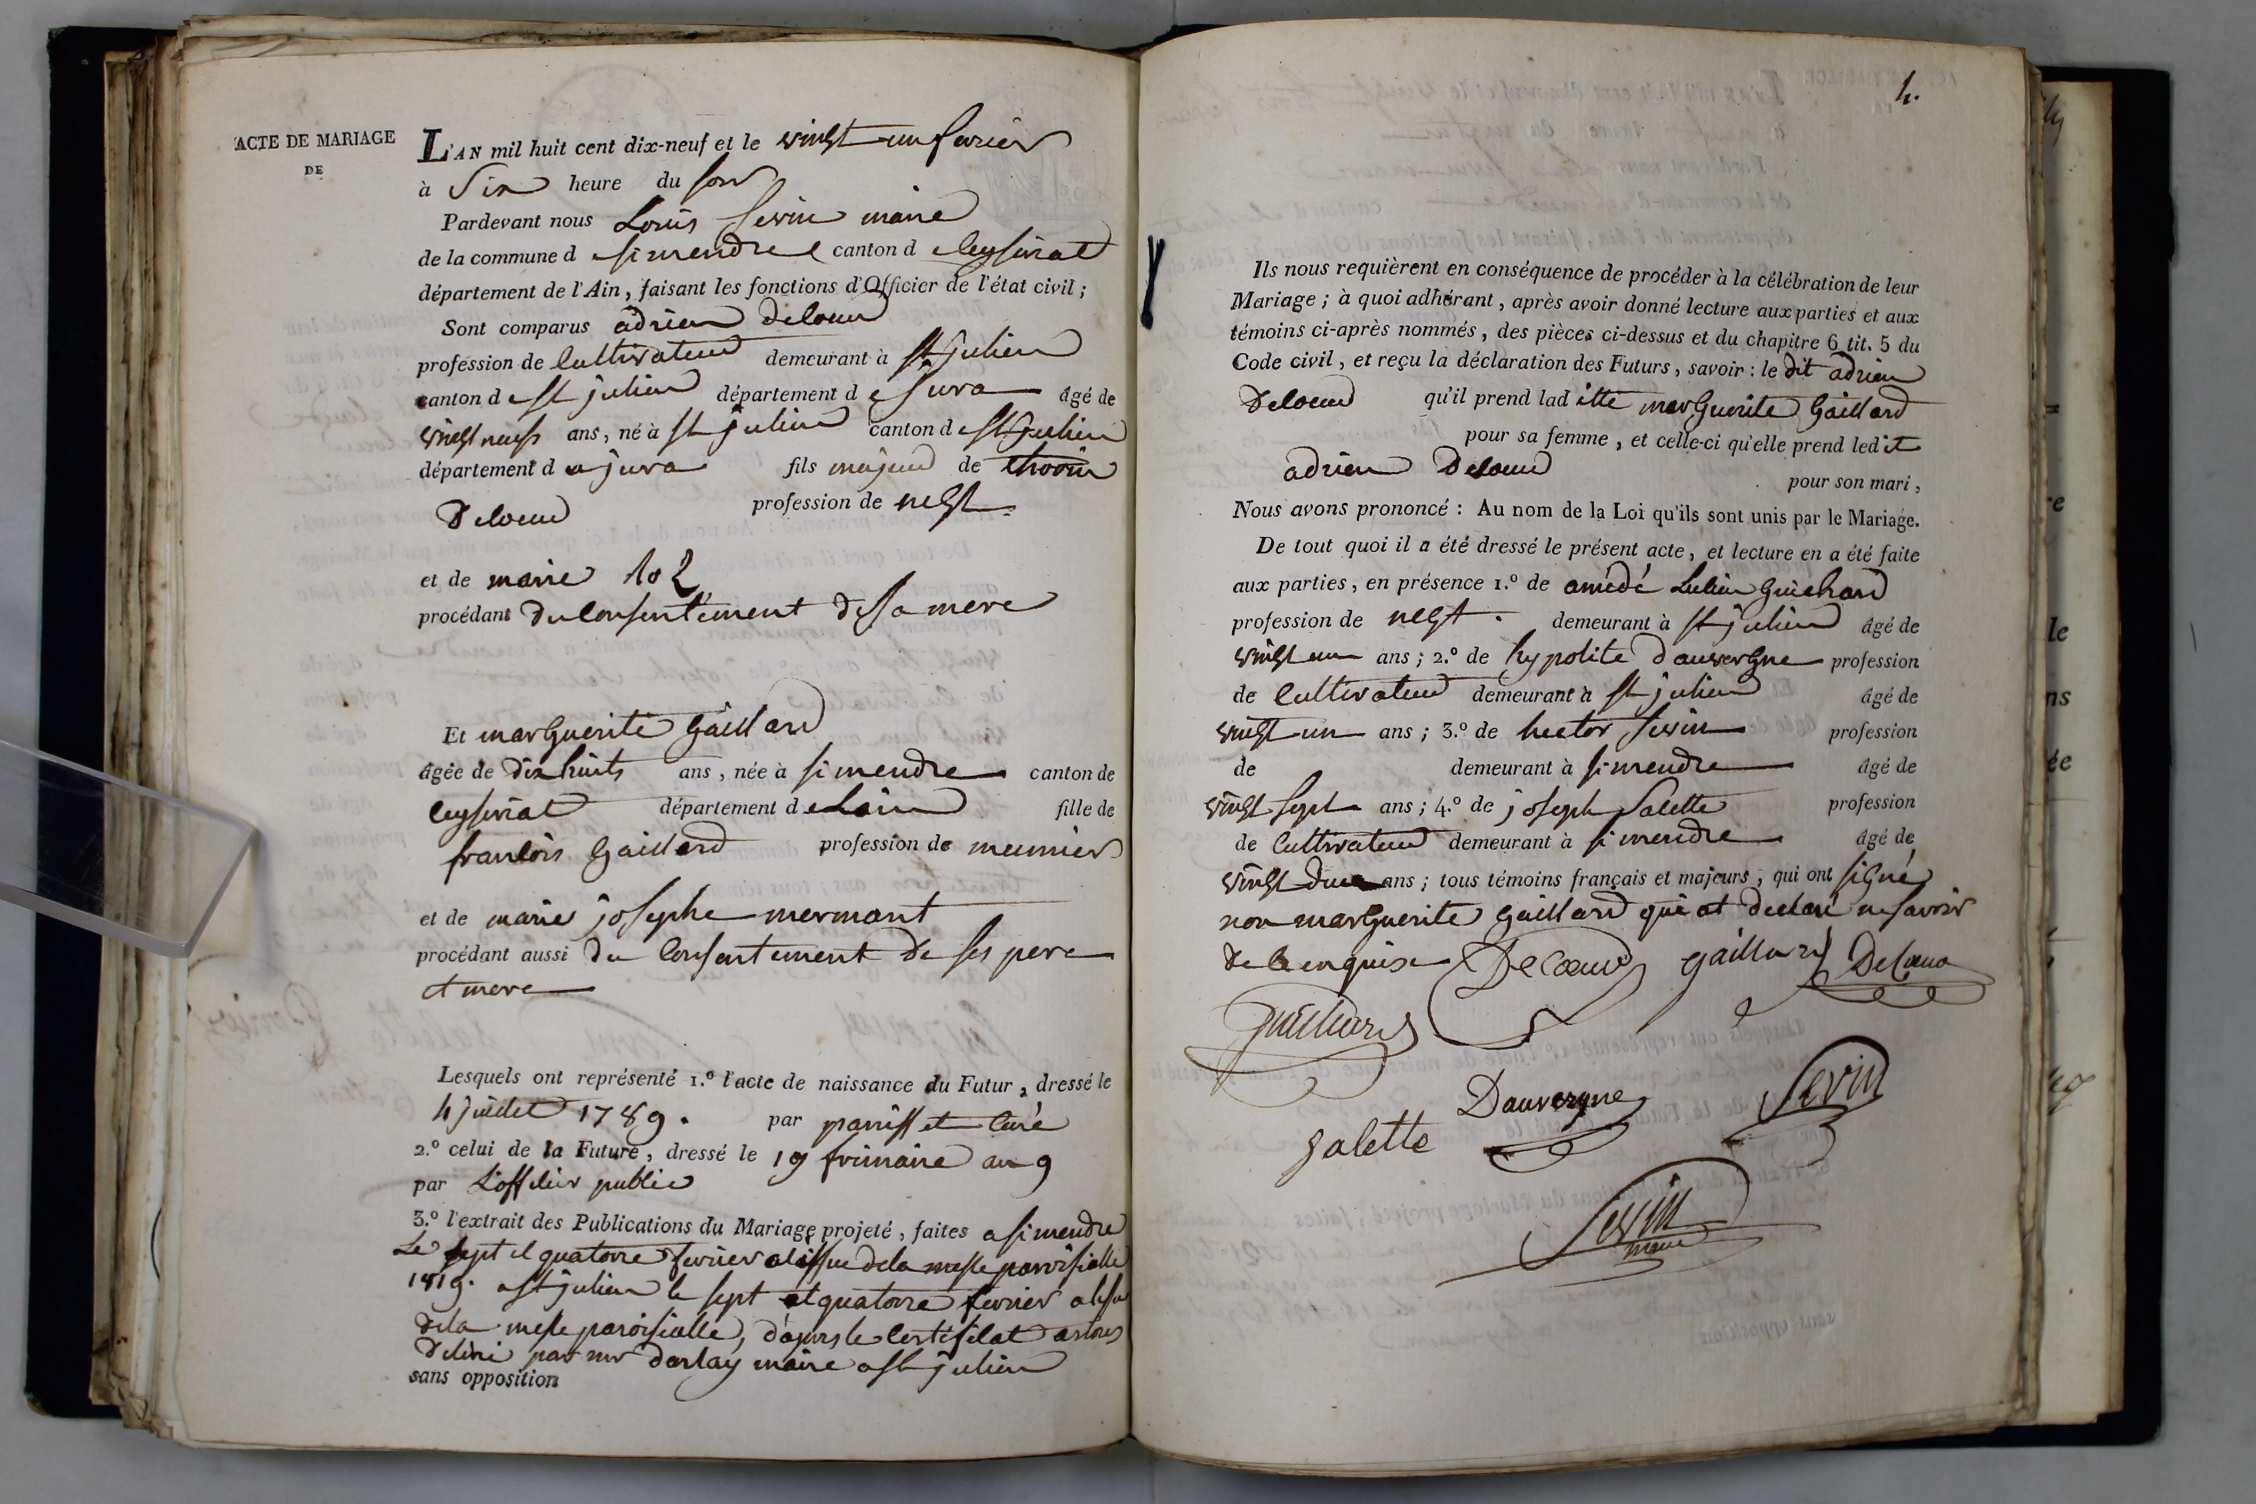 ACTE DE MARIAGE
DE
L'AN mil huit cent dix-neuf et le vingt un fevrier
à Six heure du soir
Pardevant nous Louis Sevin maire
de la commune de simendre canton de Ceyseriat
département de l'Ain, faisant les fonctions d'Officier de l'état civil;
Sont comparus adrien Decoeur
profession de Cultivateur demeurant à st julien
canton de st julien département de jura âgé de
vingt neuf ans, né à st julien canton de st julien
département du jura fils majeur de
Decoeur profession de negt.
et de marie
procédant du Consentement de sa mere
Et marguerite Gaillard
âgée de dix huits ans, née à simendre canton de
Ceyseriat département de Lain fille de
francois Gaillard profession de meunier
et de marie josephe mermant
procédant aussi du Consentement de ses pere
et mere
Lesquels ont représenté 1.º l'acte de naissance du Futur, dressé le
4 juillet 1789. par Curé
2.º celui de la Future, dressé le 19 frimaire an 9
par L'officier public
3.º l'extrait des Publications du Mariage projeté, faites a simendre
Le sept et quatorze fevrier a lissue dela messe paroisialle
1819. a st julien le sept et quatorze fevrier a
dela messe paroisialle, d'apres le Certificat
Delivré par mr Darlay maire a st julien
sans opposition
4.
Ils nous requièrent en conséquence de procéder à la célébration de leur
Mariage; à quoi adhérant, après avoir donné lecture aux parties et aux
témoins ci-après nommés, des pièces ci-dessus et du chapitre 6 tit. 5 du
Code civil, et reçu la déclaration des Futurs, savoir: le dit adrien
Decoeur qu'il prend laditte marguerite Gaillard
pour sa femme, et celle-ci qu'elle prend ledit
adrien Decoeur pour son mari,
Nous avons prononcé: Au nom de la Loi qu'ils sont unis par le Mariage.
De tout quoi il a été dressé le présent acte, et lecture en a été faite
aux parties, en présence 1.º de amédé Guichard
profession de negt. demeurant à st julien âgé de
vingt un ans; 2.º de hypolite dauvergne profession
de Cultivateur demeurant à st julien âgé de
vingt un ans; 3.º de hector Sevin profession
de demeurant à simendre âgé de
vingt sept ans; 4.º de joseph Salette profession
de Cultivateur demeurant à simendre âgé de
vingt deux ans; tous témoins français et majeurs, qui ont signé
non marguerite Gaillard qui at declaré ne savoir
de ce enquise Decoeur gaillard Decoeur
guichard
Dauvergne Sevin
Salette
Sevin
maire